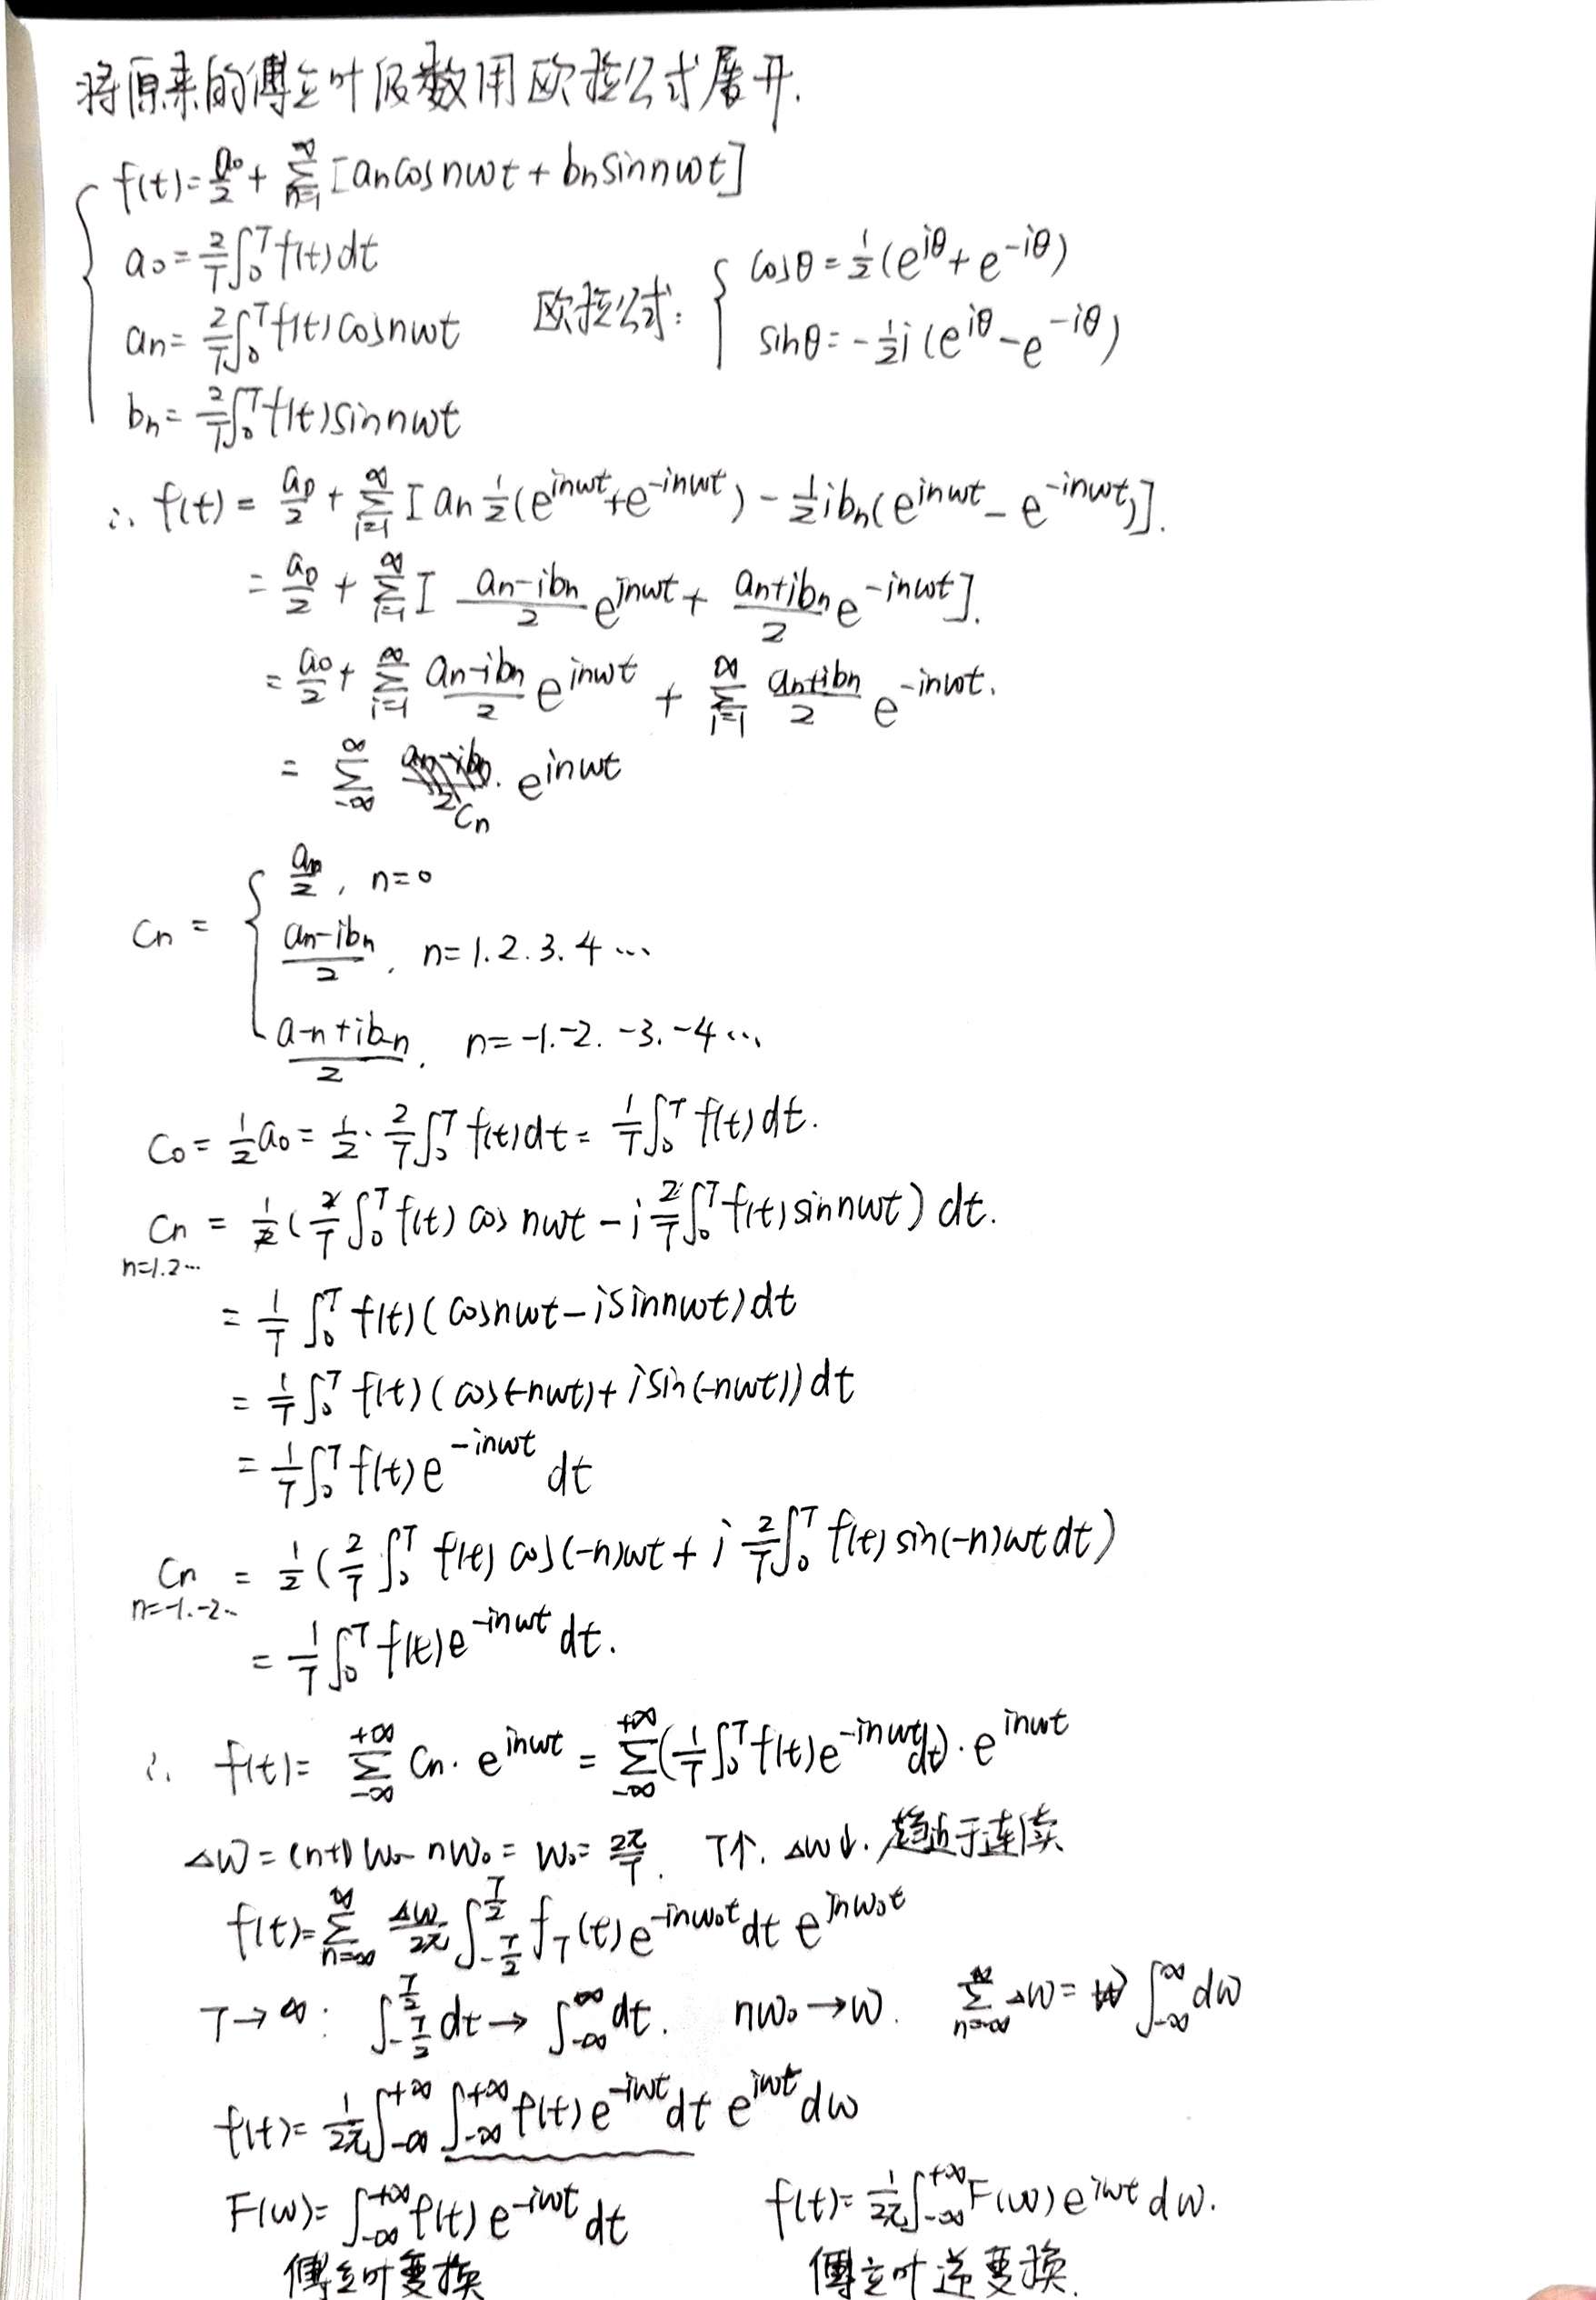 将原来的傅立叶级数用欧拉公式展开.
f(t)=a₀/2+∑_{n=1}^{∞}[aₙcosnωt+bₙsinnωt]
a₀=2/T∫₀ᵀf(t)dt
aₙ=2/T∫₀ᵀf(t)cosnωt
bₙ=2/T∫₀ᵀf(t)sinnωt
欧拉公式:
cosθ=1/2(e^{iθ}+e^{-iθ})
sinθ=-1/2i(e^{iθ}-e^{-iθ})
∴f(t)=a₀/2+∑_{i=1}^{∞}[aₙ1/2(e^{inωt}+e^{-inωt})-1/2ibₙ(e^{inωt}-e^{-inωt})].
=a₀/2+∑_{i=1}^{∞}[(aₙ-ibₙ)/2 e^{inωt}+(aₙ+ibₙ)/2 e^{-inωt}].
=a₀/2+∑_{i=1}^{∞}(aₙ-ibₙ)/2 e^{inωt}+∑_{i=1}^{∞}(aₙ+ibₙ)/2 e^{-inωt}.
=∑_{-∞}^{∞} cₙ·e^{inωt}
Cₙ=
a₀/2, n=0
(aₙ-ibₙ)/2, n=1.2.3.4…
(a₋ₙ+ib₋ₙ)/2, n=-1.-2.-3.-4…
C₀=1/2a₀=1/2·2/T∫₀ᵀf(t)dt=1/T∫₀ᵀf(t)dt.
Cₙ=1/2(2/T∫₀ᵀf(t)cosnωt-i2/T∫₀ᵀf(t)sinnωt)dt.
n=1.2…
=1/T∫₀ᵀf(t)(cosnωt-isinnωt)dt
=1/T∫₀ᵀf(t)(cos(-nωt)+isin(-nωt))dt
=1/T∫₀ᵀf(t)e^{-inωt}dt
Cₙ=1/2(2/T∫₀ᵀf(t)cos(-n)ωt+i2/T∫₀ᵀf(t)sin(-n)ωtdt)
n=-1.-2..
=1/T∫₀ᵀf(t)e^{-inωt}dt.
∴f(t)=∑_{-∞}^{+∞}Cₙ·e^{inωt}=∑_{-∞}^{+∞}(1/T∫₀ᵀf(t)e^{-inωt}dt)·e^{inωt}
△ω=(n+1)ω₀-nω₀=ω₀=2π/T. T↑.△ω↓.趋近于连续
f(t)=∑_{n=-∞}^{∞}△ω/2π∫_{-T/2}^{T/2}f_T(t)e^{-inω₀t}dt e^{inω₀t}
T→∞: ∫_{-T/2}^{T/2}dt→∫_{-∞}^{∞}dt. nω₀→ω. ∑_{n=-∞}^{∞}△ω=∫_{-∞}^{∞}dω
f(t)=1/2π∫_{-∞}^{+∞}∫_{-∞}^{+∞}f(t)e^{-iωt}dt e^{iωt}dω
F(ω)=∫_{-∞}^{+∞}f(t)e^{-iωt}dt f(t)=1/2π∫_{-∞}^{+∞}F(ω)e^{iωt}dω.
傅立叶变换 傅立叶逆变换.